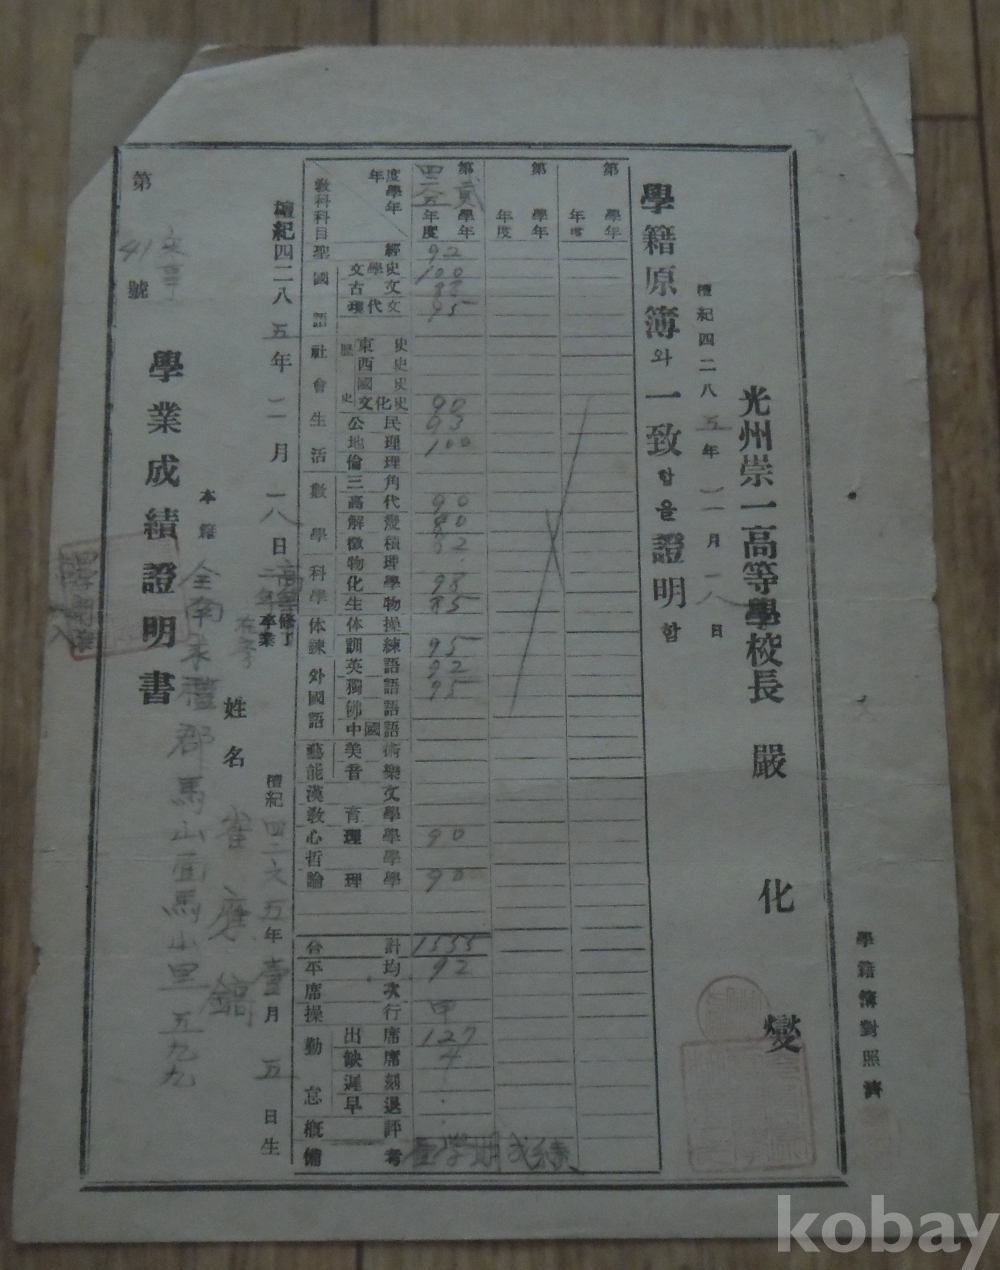 第 41 號
學業成績證明書
本籍 全南 郡馬山面馬山里五九九
姓名 崔應鎬
檀紀四二 五年壹月五日生
檀紀四二八五年一一月一八日
高等 二年 修了 卒業 在學
敎科科目 年度 學年 第貳學年 四二八五年度 第 學年 年度 第 學年 年度
聖經 92
國語 文學史 100
古文
現代文 95
社會生活 歷史 東史
西史
國史
文化史 90
公民 93
地理 100
倫理
數學 三角
高代 90
解幾
微積
科學 物理
化學 98
生物 85
体鍊 体操
訓練 95
外國語 英語 92
獨語 95
佛語
中國語
藝能 美術
音樂
漢文
敎育學
心理學 90
哲學
論理學 90
合計 1555
平均 92
席次
操行 甲
勤怠 出席 127
缺席 4
遲刻
早退
概評
備考 壹學期成績
學籍原簿와一致함을證明함
檀紀四二八五年一一月一八日
光州崇一高等學校長 嚴化變
學籍簿對照濟
kobay